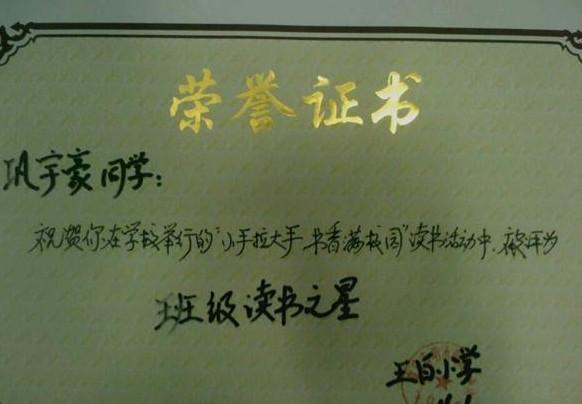 荣誉证书
巩宇豪同学：
祝贺你在学校举行的“小手拉大手 书香满校园”读书活动中，被评为
班级读书之星
王白小学